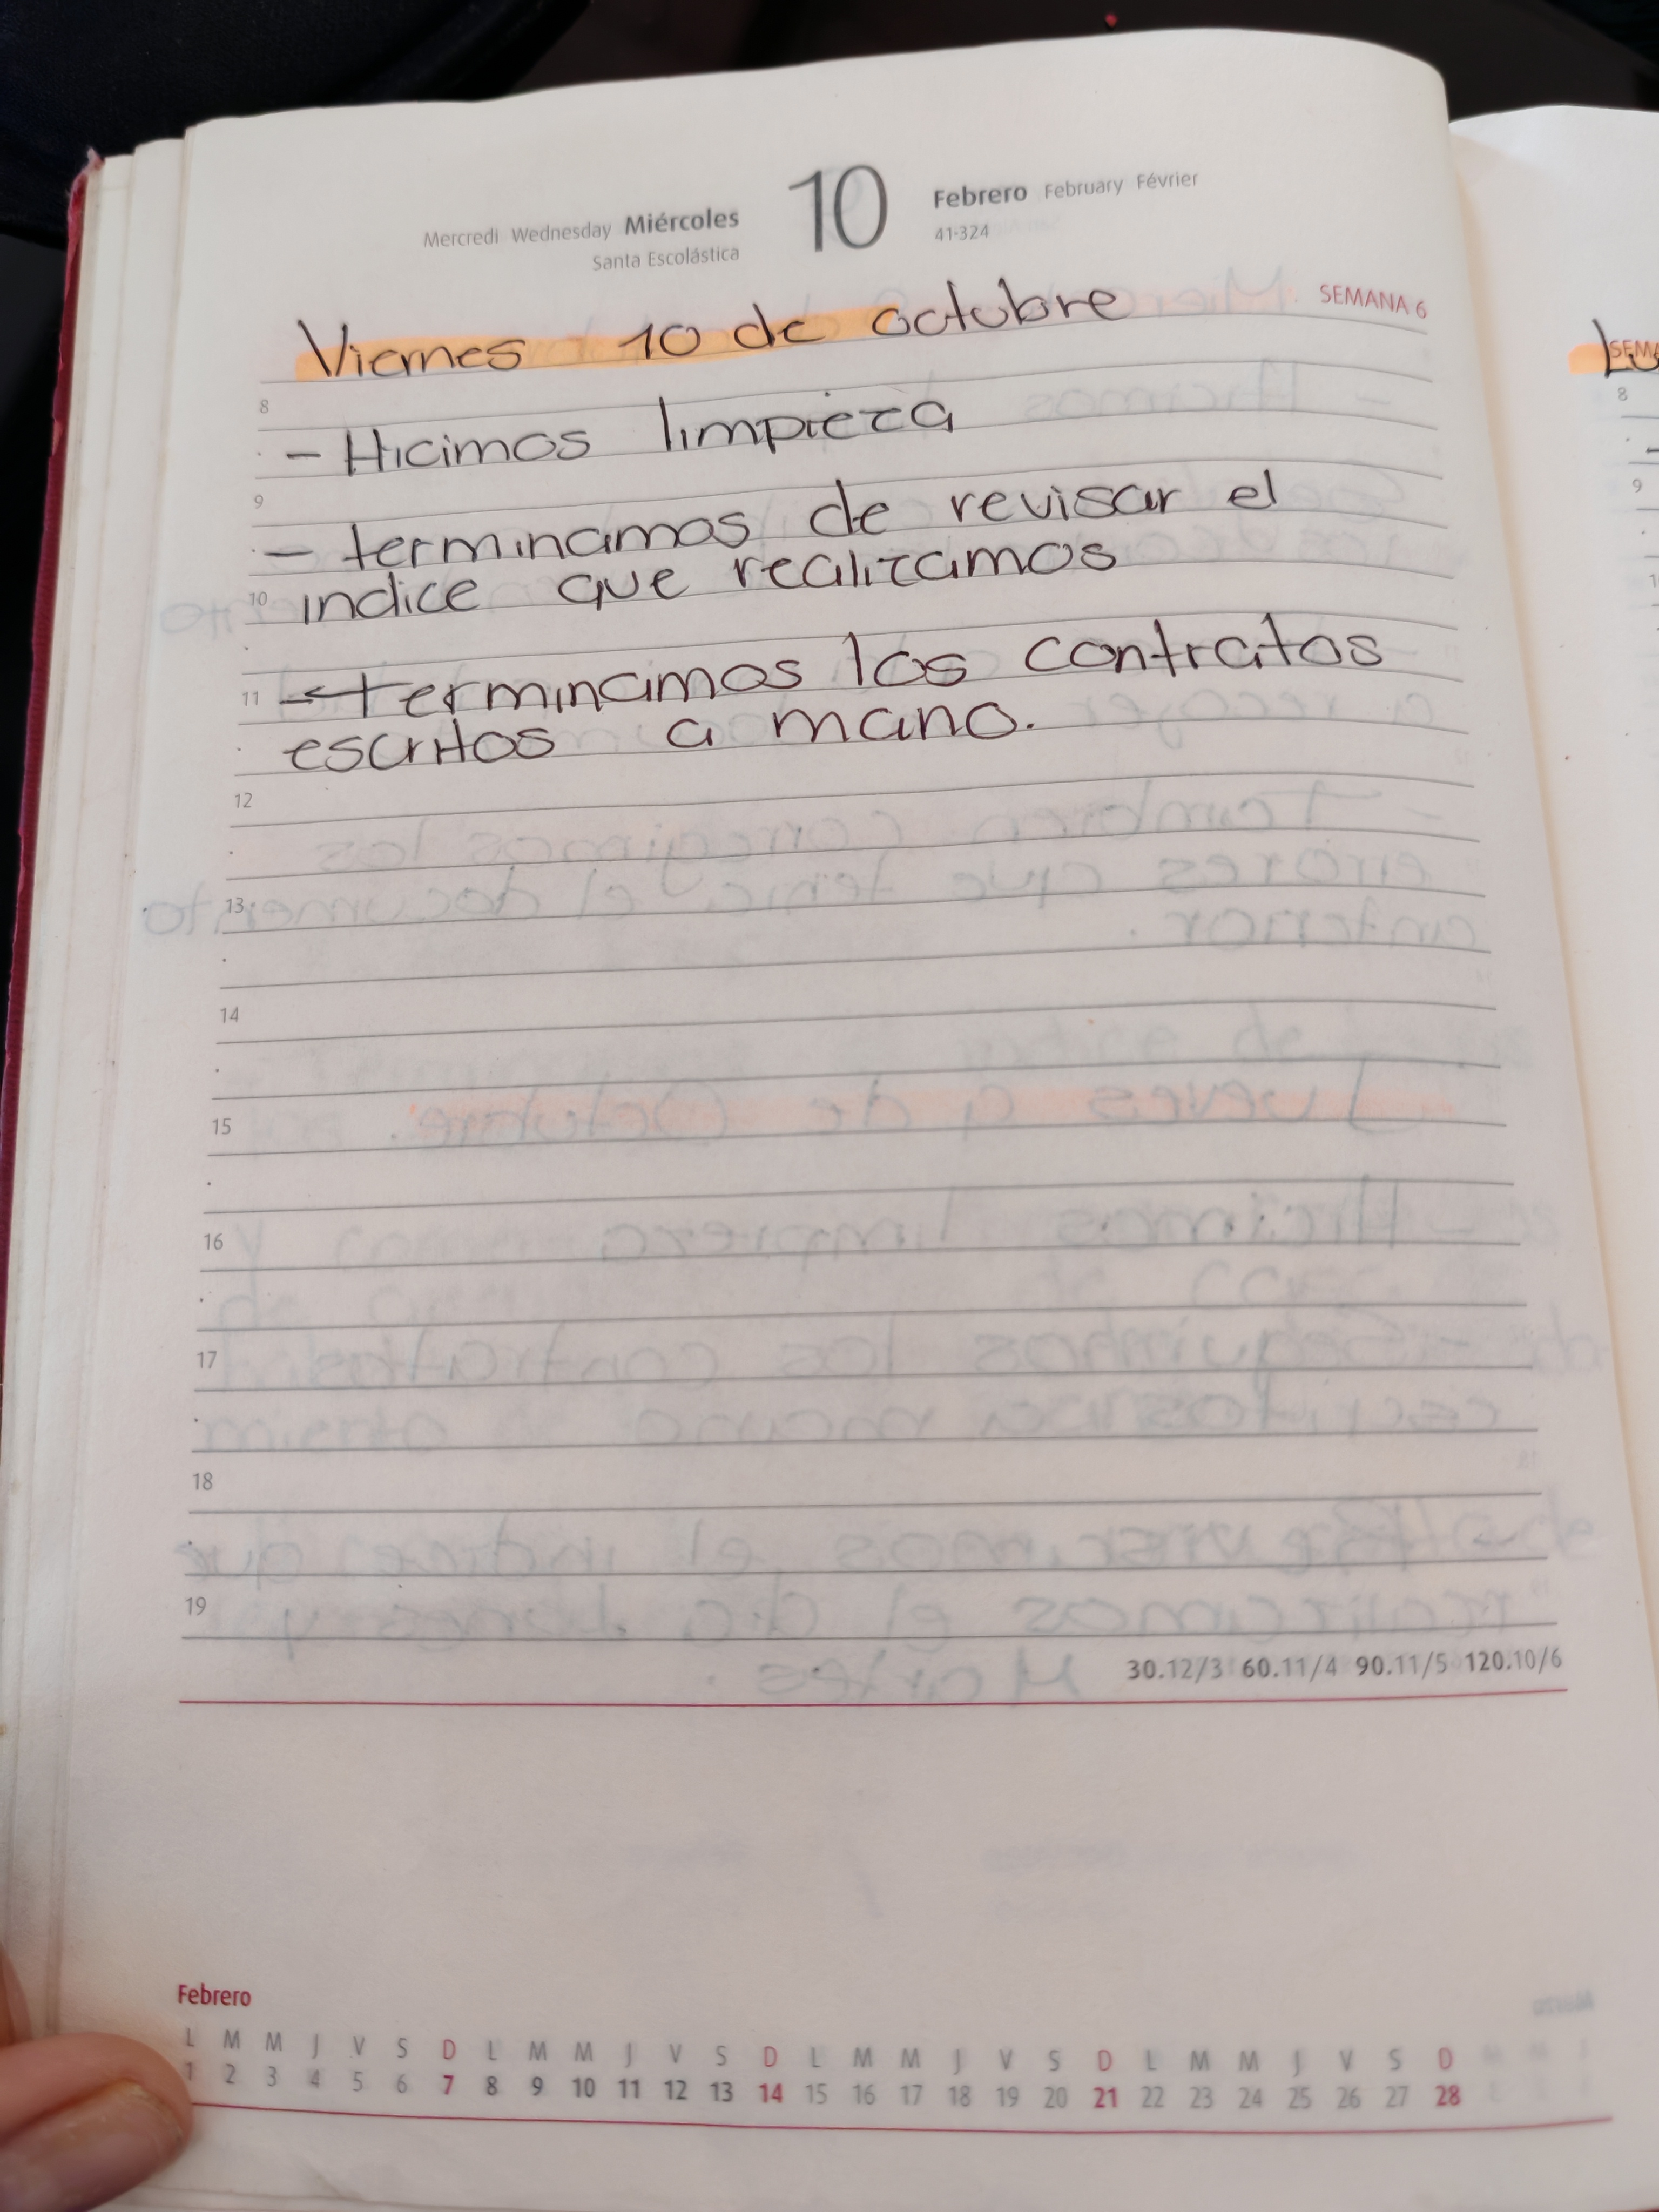 Mercredi Wednesday Miércoles 10 Febrero February Février
Santa Escolástica 41-324
SEMANA 6
Viernes 10 de octubre
8
- Hicimos limpieza
9
- terminamos de revisar el
10 indice que realizamos
11 - terminamos los contratos
escritos a mano.
12
13
14
15
16
17
18
19
30.12/3 60.11/4 90.11/5 120.10/6
Febrero
L M M J V S D L M M J V S D L M M J V S D L M M J V S D
1 2 3 4 5 6 7 8 9 10 11 12 13 14 15 16 17 18 19 20 21 22 23 24 25 26 27 28
8
9